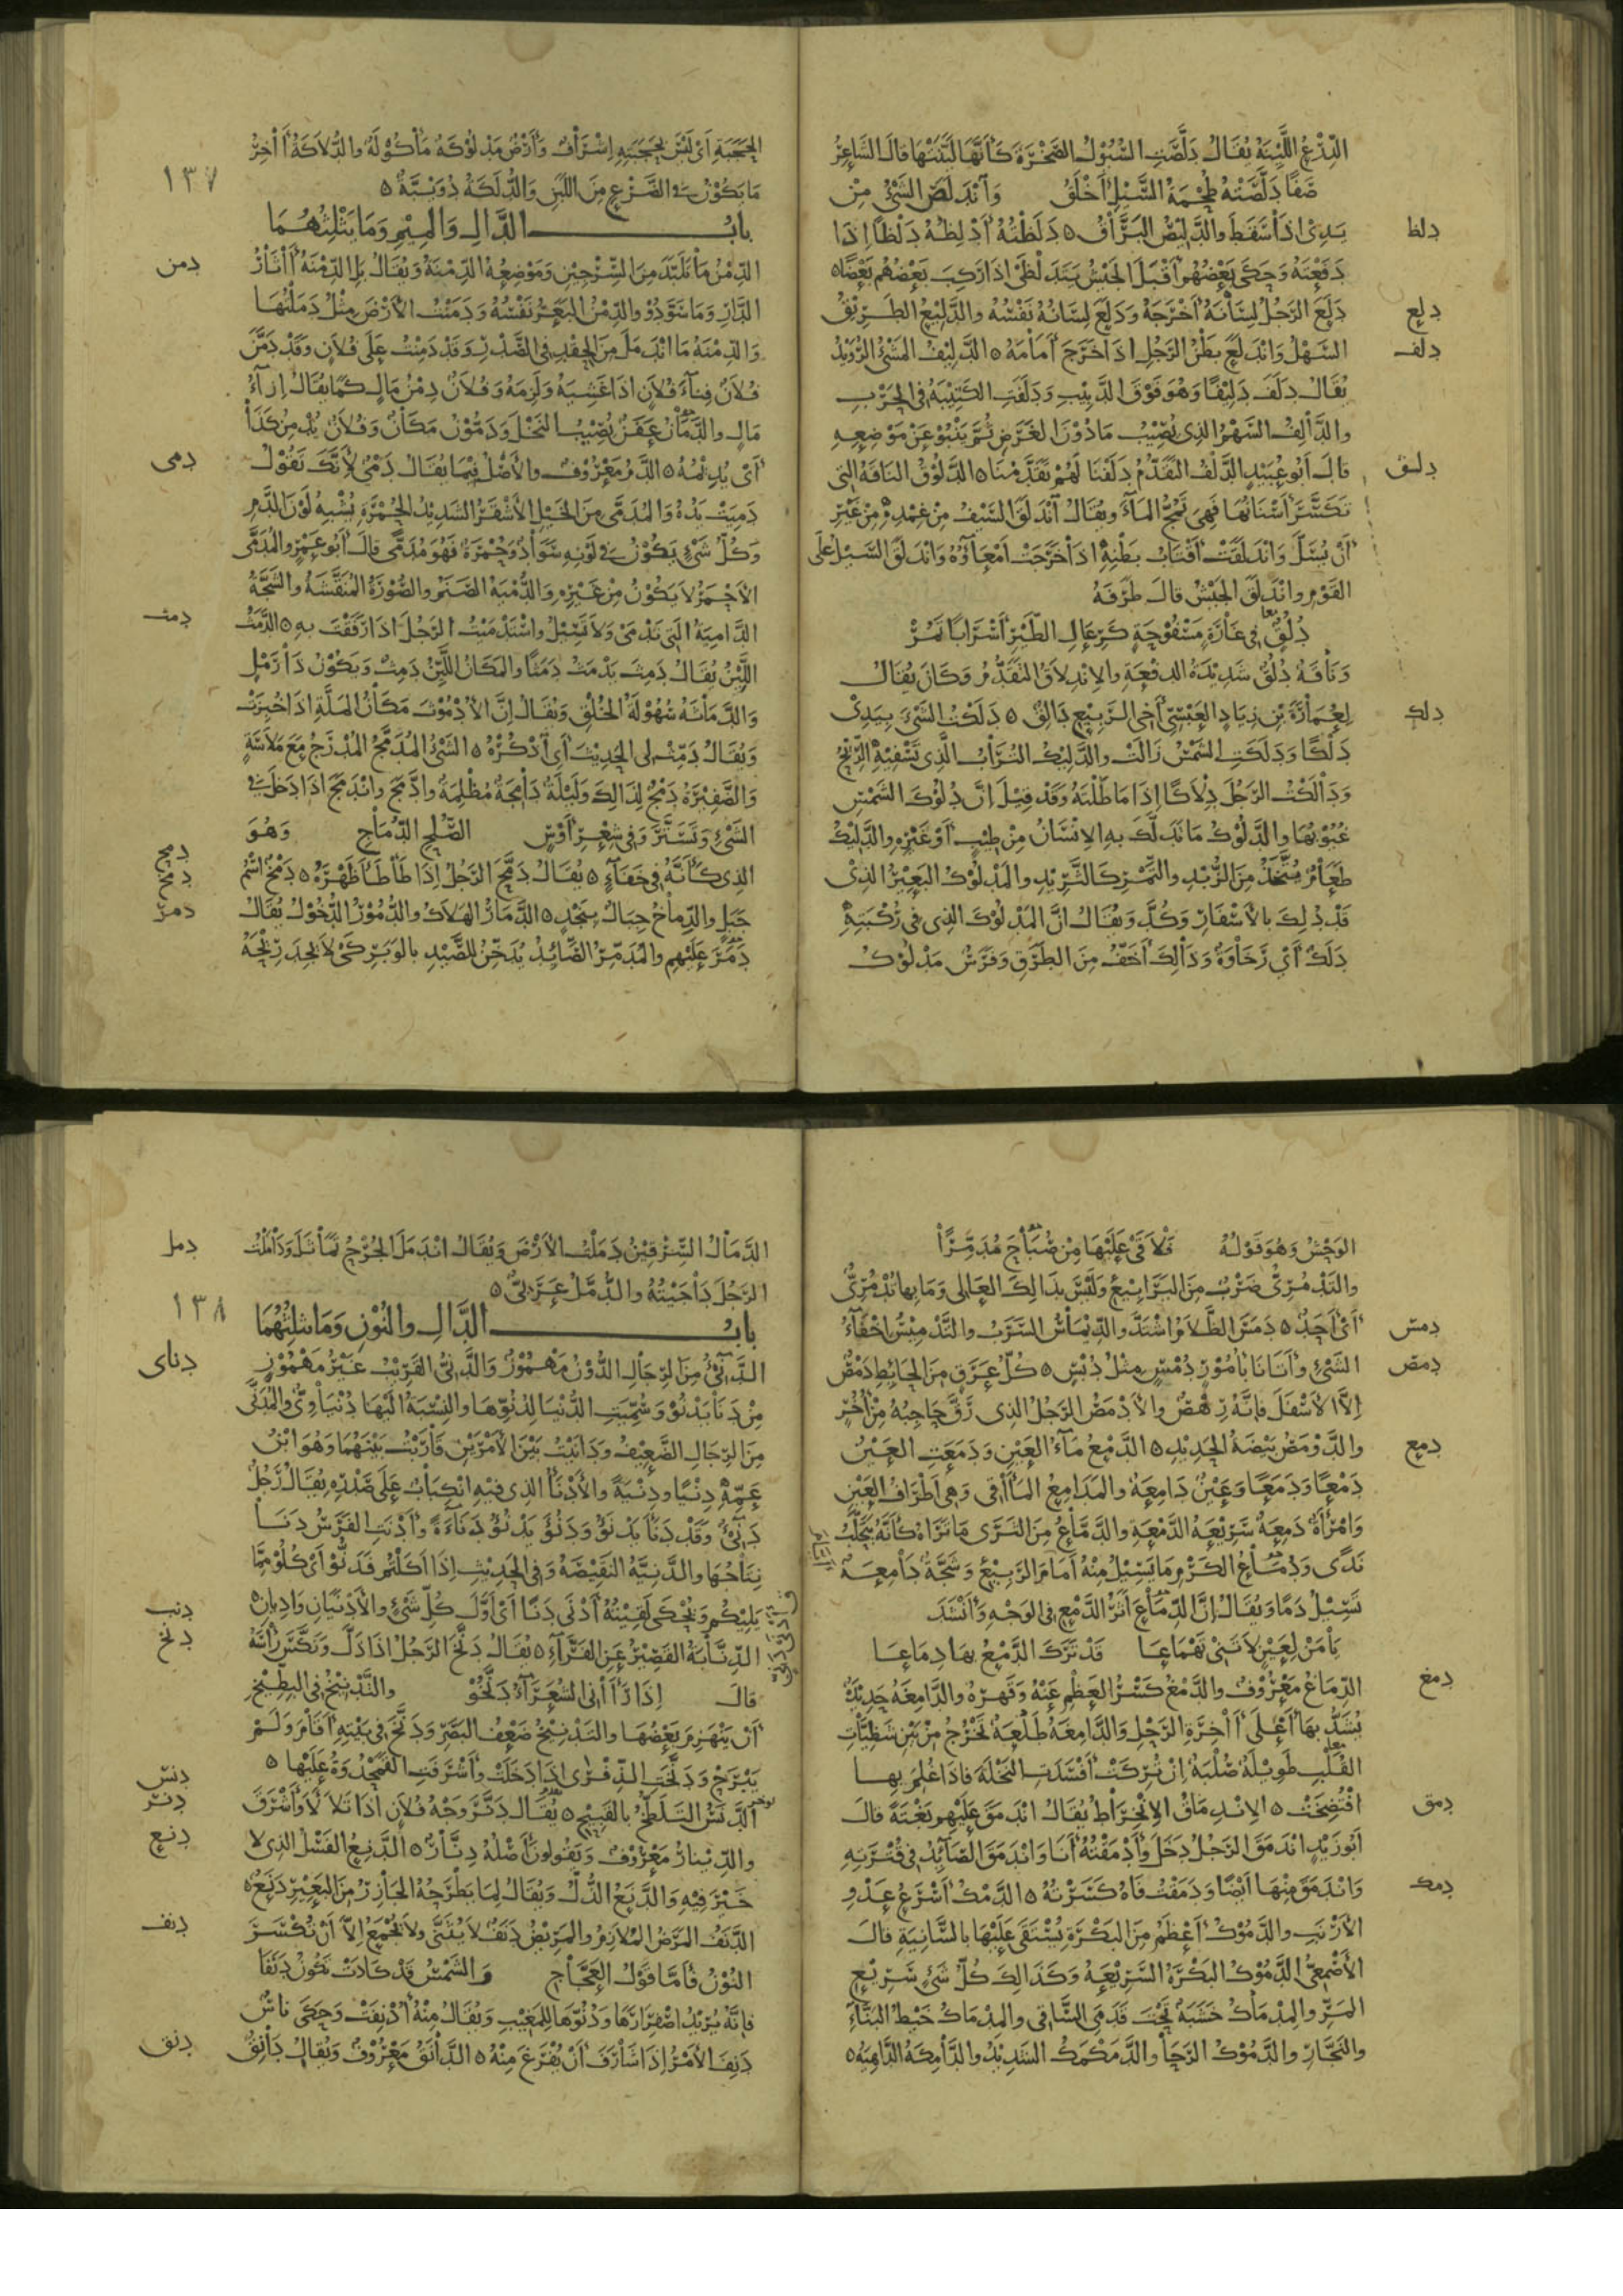 الدِّرْعُ اللَّيِّنَةُ يُقَالُ دَلَّصَتِ السُّيُوْلُ الصَّخْرَةَ كَأَنَّهَا لَيَّنَتْهَا قَالَ الشَّاعِرُ
صَفًا دَلَّصَتْهُ طُحْمَةُ السَّيْلِ أَخْلَقُ وَانْدَلَصَ الشَّيْءُ مِنْ
دلظ
يَدِيْ إِذَا سَقَطَ وَالدَّلِيْصُ البَرَّاقُ ٥ دَلَظْتُهُ أَدْلِظُهُ دَلْظًا إِذَا
دَفَعْتَهُ وَحَكَى بَعْضُهُمْ أَقْبَلَ الجَيْشُ يَتَدَلْظَى إِذَا رَكِبَ بَعْضُهُمْ بَعْضًا ٥
دلع
دَلَعَ الرَّجُلُ لِسَانَهُ أَخْرَجَهُ وَدَلَعَ لِسَانُهُ نَفْسُهُ وَالدَّلِيْعُ الطَّرِيْقُ
دلف
السَّهْلُ وَانْدَلَعَ بَطْنُ الرَّجُلِ إِذَا خَرَجَ أَمَامَهُ ٥ الدَّلِيْفُ المَشْيُ الرُّوَيْدُ
يُقَالُ دَلَفَ دَلِيْفًا وَهُوَ فَوْقَ الدَّبِيْبِ وَدَلَفَتِ الكَتِيْبَةُ فِي الحَرْبِ
وَالدَّالِفُ السَّهْمُ الَّذِي يُصِيْبُ مَا دُوْنَ الغَرَضِ ثُمَّ يَنْبُوْ عَنْ مَوْضِعِهِ
دلق
قَالَ أَبُو عُبَيْدٍ الدَّلْفُ التَّقَدُّمُ دَلَفْنَا لَهُمْ تَقَدَّمْنَا ٥ الدَّلُوْقُ النَّاقَةُ الَّتِي
تَكَسَّرَ أَسْنَانُهَا فَهِيَ تَمُجُّ المَاءَ وَيُقَالُ انْدَلَقَ السَّيْفُ مِنْ غِمْدِهِ مِنْ غَيْرِ
أَنْ يُسَلَّ وَانْدَلَقَتْ أَقْتَابُ بَطْنِهِ إِذَا خَرَجَتْ أَمْعَاؤُهُ وَانْدَلَقَ السَّيْلُ عَلَى
القَوْمِ وَانْدَلَقَ الجَيْشُ قَالَ طَرَفَةُ
دُلُقٌ فِي غَارَةٍ مَسْفُوْحَةٍ كَرِعَالِ الطَّيْرِ أَسْرَابًا تَمُرّْ
وَنَاقَةٌ دُلُقٌ شَدِيْدَةُ الدَّفْعَةِ وَالِانْدِلَاقُ التَّقَدُّمُ وَكَانَ يُقَالُ
دلك
لِعُمَارَةَ بْنِ زِيَادٍ العَبْسِيِّ أَخِي الرَّبِيْعِ دَالِقٌ ٥ دَلَكْتُ الشَّيْءَ بِيَدِيْ
دَلْكًا وَدَلَكَتِ الشَّمْسُ زَالَتْ وَالدَّلِيْكُ التُّرَابُ الَّذِي تَسْفِيْهِ الرِّيْحُ
وَدَالَكْتُ الرَّجُلَ دِلَاكًا إِذَا مَاطَلْتَهُ وَقَدْ قِيْلَ إِنَّ دُلُوْكَ الشَّمْسِ
غُيُوْبُهَا وَالدَّلُوْكُ مَا تَدَلَّكَ بِهِ الإِنْسَانُ مِنْ طِيْبٍ أَوْ غَيْرِهِ وَالدَّلِيْكُ
طَعَامٌ يُتَّخَذُ مِنَ الزُّبْدِ وَالتَّمْرِ كَالثَّرِيْدِ وَالمَدْلُوْكُ البَعِيْرُ الَّذِيْ
قَدْ دُلِكَ بِالأَسْفَارِ وَكُدَّ وَيُقَالُ إِنَّ المَدْلُوْكَ الَّذِي فِي رُكْبَتِهِ
دَلَكٌ أَيْ رَخَاوَةٌ وَذَالِكَ أَخَفُّ مِنَ الطَّرَقِ وَفَرَسٌ مَدْلُوْكُ
١٣٧
الحَجَبَةِ أَيْ لَيْسَ بِحَجَبَتِهِ إِشْرَافٌ وَأَرْضٌ مَدْلُوْكَةٌ مَأْكُوْلَةٌ وَالدُّلَاكَةُ آخِرُ
مَا يَكُوْنُ فِي الضَّرْعِ مِنَ اللَّبَنِ وَالدُّلَكَةُ دُوَيْبَّةٌ ٥
بَابُ الدَّالِ وَالمِيْمِ وَمَا يَثْلِثُهُمَا
دمن
الدِّمْنُ مَا تَلَبَّدَ مِنَ السِّرْجِيْنِ وَمَوْضِعُهُ الدِّمْنَةُ وَيُقَالُ بَلِ الدِّمْنَةُ آثَارُ
الدَّارِ وَمَا سَوَّدُوْ وَالدِّمْنُ البَعَرُ نَفْسُهُ وَدَمَنْتُ الأَرْضَ مِثْلُ دَمَلْتُهَا
وَالدِّمْنَةُ مَا انْدَمَلَ مِنَ الحِقْدِ فِي الصَّدْرِ وَقَدْ دَمِنْتُ عَلَى فُلَانٍ وَقَدْ دَمَّنَ
فُلَانٌ فِنَاءَ فُلَانٍ إِذَا غَشِيَهُ وَلَزِمَهُ وَفُلَانٌ دِمْنُ مَالٍ كَمَا يُقَالُ إِزَاءُ
مَالٍ وَالدَّمَانُ عَفَنٌ يُصِيْبُ النَّخْلَ وَدَمُّوْنُ مَكَانٌ وَفُلَانٌ يُدْمِنُ كَذَا
دمى
أَيْ يُدِيْمُهُ ٥ الدَّمُ مَعْرُوْفٌ وَالأَصْلُ فِيْمَا يُقَالُ دَمْيٌ لِأَنَّكَ تَقُوْلُ
دَمِيَتْ يَدُهُ وَالمُدَمَّى مِنَ الخَيْلِ الأَشْقَرُ الشَّدِيْدُ الحُمْرَةِ يُشْبِهُ لَوْنَ الدَّمِ
وَكُلُّ شَيْءٍ يَكُوْنُ فِي لَوْنِهِ سَوَادٌ وَحُمْرَةٌ فَهُوَ مُدَمًّى قَالَ أَبُو عَمْرٍو المُدَمَّى
الأَحْمَرُ لَا يَكُوْنُ مِنْ غَيْرِهِ وَالدُّمْيَةُ الصَّنَمُ وَالصُّوْرَةُ المُنَقَّشَةُ وَالشَّجَّةُ
دمث
الدَّامِيَةُ الَّتِي تَدْمَى وَلَا تَسِيْلُ وَاسْتَدْمَيْتُ الرَّجُلَ إِذَا رَفَقْتَ بِهِ ٥ الدَّمِثُ
اللَّيِّنُ يُقَالُ دَمِثَ يَدْمَثُ دَمَثًا وَالمَكَانُ اللَّيِّنُ دَمِثٌ وَيَكُوْنُ ذَا رَمْلٍ
وَالدَّمَاثَةُ سُهُوْلَةُ الخُلُقِ وَيُقَالُ إِنَّ الأُدْمُوْثَ مَكَانُ المَلَّةِ إِذَا خُبِزَتْ
وَيُقَالُ دَمِّثْ لِي الحَدِيْثَ أَيْ اذْكُرْهُ ٥ الشَّيْءُ المُدَمَّجُ المُدْرَجُ مَعَ مَلَاسَةٍ
وَالضَّفِيْرَةُ دَمْجٌ لِذَالِكَ وَلَيْلَةٌ دَامِجَةٌ مُظْلِمَةٌ وَادَّمَجَ وَانْدَمَجَ إِذَا دَخَلَ فِي
الشَّيْءِ وَتَسَتَّرَ وَفِي شِعْرِ أَوْسٍ الصُّلْحِ الدُّمَاجِ وَهُوَ
دمح
دمخ
الَّذِي كَأَنَّهُ فِي خَفَاءٍ ٥ يُقَالُ دَمَّحَ الرَّجُلُ إِذَا طَأْطَأَ ظَهْرَهُ ٥ دَمْخٌ اسْمُ
دمر
جَبَلٍ وَالدِّمَاخُ جِبَالٌ بِنَجْدٍ ٥ الدَّمَارُ الهَلَاكُ وَالدُّمُوْرُ الدُّخُوْلُ يُقَالُ
دَمَرَ عَلَيْهِمْ وَالمُدَمِّرُ الصَّائِدُ يُدَخِّنُ لِلصَّيْدِ بِالوَبَرِ كَيْ لَا يَجِدَ رِيْحَهُ
الوَحْشُ وَهُوَ قَوْلُهُ فَلَاقَى عَلَيْهَا مِنْ صُبَاحَ مُدَمِّرًا
وَالتَّدْمُرِيُّ ضَرْبٌ مِنَ اليَرَابِيْعِ وَلَيْسَ بِذَالِكَ العَالِي وَمَا بِهَا تُدْمُرِيٌّ
دمس
أَيْ أَحَدٌ ٥ دَمَسَ الظَّلَامُ اشْتَدَّ وَالدِّيْمَاسُ السَّرَبُ وَالتَّدْمِيْسُ إِخْفَاءُ
دمص
الشَّيْءِ وَأَتَانَا بِأُمُوْرٍ دُمْسٍ مِثْلُ دُبْسٍ ٥ كُلُّ عَرَقٍ مِنَ الحَائِطِ دَمْصٌ
إِلَّا الأَسْفَلَ فَإِنَّهُ رِهْصٌ وَالأَدْمَصُ الرَّجُلُ الَّذِي رَقَّ حَاجِبُهُ مِنْ أُخُرٍ
دمع
وَالدَّوْمَصُ بَيْضَةُ الحَدِيْدِ ٥ الدَّمْعُ مَاءُ العَيْنِ وَدَمَعَتِ العَيْنُ
دَمْعًا وَدَمَعًا وَعَيْنٌ دَامِعَةٌ وَالمَدَامِعُ المَآقِي وَهِيَ أَطْرَافُ العَيْنِ
وَامْرَأَةٌ دَمِعَةٌ سَرِيْعَةُ الدَّمْعَةِ وَالدَّمَّاعُ مِنَ الثَّرَى مَا تَرَاهُ كَأَنَّهُ يَتَحَلَّبُ
نَدًى وَدُمَّاعُ الكَرْمِ مَا يَسِيْلُ مِنْهُ أَيَّامَ الرَّبِيْعِ وَشَجَّةٌ دَامِعَةٌ
تَسِيْلُ دَمًا وَيُقَالُ إِنَّ الدِّمَاعَ أَثَرُ الدَّمْعِ فِي الوَجْهِ وَأَنْشَدَ
يَا مَنْ لِعَيْنٍ لَا تَنِيْ تَهْمَاعَا قَدْ تَرَكَ الدَّمْعُ بِهَا دِمَاعَا
دمغ
الدِّمَاغُ مَعْرُوْفٌ وَالدَّمْغُ كَسْرُ العَظْمِ عَنْهُ وَقَهْرُهُ وَالدَّامِغَةُ حَدِيْدَةٌ
يُشَدُّ بِهَا أَعْلَى آخِرَةِ الرَّحْلِ وَالدَّامِغَةُ طَلْعَةٌ تَخْرُجُ مِنْ بَيْنِ شَظِيَّاتِ
القُلْبِ طَوِيْلَةٌ صُلْبَةٌ إِنْ تُرِكَتْ أَفْسَدَتِ النَّخْلَةَ فَإِذَا عُلِمَ بِهَا
دمق
امْتُضِخَتْ ٥ الِانْدِمَاقُ الِانْخِرَاطُ يُقَالُ انْدَمَقَ عَلَيْهِمْ بَغْتَةً قَالَ
أَبُو زَيْدٍ انْدَمَقَ الرَّجُلُ دَخَلَ وَأَدْمَقْتُهُ أَنَا وَانْدَمَقَ الصَّائِدُ فِي قُتْرَتِهِ
دمك
وَانْدَمَقَ مِنْهَا أَيْضًا وَدَمَقْتُ فَاهُ كَسَرْتُهُ ٥ الدَّمْكُ أَسْرَعُ عَدْوِ
الأَرْنَبِ وَالدَّمُوْكُ أَعْظَمُ مِنَ البَكْرَةِ يُسْتَقَى عَلَيْهَا بِالسَّانِيَةِ قَالَ
الأَصْمَعِيُّ الدَّمُوْكُ البَكْرَةُ السَّرِيْعَةُ وَكَذَالِكَ كُلُّ شَيْءٍ سَرِيْعٍ
المَرِّ وَالمِدْمَاكُ خَشَبَةٌ تَحْتَ قَدَمَيِ السَّاقِي وَالمِدْمَاكُ خَيْطُ البَنَّاءِ
وَالنَّجَّارِ وَالدَّمُوْكُ الرَّحَا وَالدَّمَكْمَكُ الشَّدِيْدُ وَالدَّامِكَةُ الدَّاهِيَةُ ٥
دمل
الدَّمَالُ السِّرْقِيْنُ دَمَلْتُ الأَرْضَ وَيُقَالُ انْدَمَلَ الجُرْحُ تَمَاثَلَ وَدَامَلْتُ
الرَّجُلَ دَاجَيْتُهُ وَالدُّمَّلُ عَرَبِيٌّ ٥
١٣٨
بَابُ الدَّالِ وَالنُّوْنِ وَمَا يَثْلِثُهُمَا
دناى
الدَّنِيْءُ مِنَ الرِّجَالِ الدُّوْنُ مَهْمُوْزٌ وَالدَّنِيُّ القَرِيْبُ غَيْرُ مَهْمُوْزٍ
مِنْ دَنَا يَدْنُوْ وَسُمِّيَتِ الدُّنْيَا لِدُنُوِّهَا وَالنِّسْبَةُ إِلَيْهَا دُنْيَاوِيٌّ وَالمُدَنِّي
مِنَ الرِّجَالِ الضَّعِيْفُ وَدَانَيْتُ بَيْنَ الأَمْرَيْنِ قَارَبْتُ بَيْنَهُمَا وَهُوَ ابْنُ
عَمِّهِ دِنْيًا وَدِنْيَةً وَالأَدْنَأُ الَّذِي فِيْهِ انْكِبَابٌ عَلَى صَدْرِهِ يُقَالُ رَجُلٌ
دَنِيْءٌ وَقَدْ دَنَأَ يَدْنَؤُ وَدَنُؤَ يَدْنُؤُ دَنَاءَةً وَأَدْنَتِ الفَرَسُ دَنَا
نِتَاجُهَا وَالدَّنِيَّةُ النَّقِيْصَةُ وَفِي الحَدِيْثِ إِذَا أَكَلْتُمْ فَدَنُّوْا أَيْ كُلُوْا مِمَّا
دنب
يَلِيْكُمْ وَيُحْكَى لَقِيْتُهُ أَدْنَى دَنًا أَيْ أَوَّلَ كُلِّ شَيْءٍ وَالأَدْنَيَانِ وَادِيَانِ ٥
دنخ
الدِّنَّابَةُ القَصِيْرُ عَنِ الفَرَّاءِ ٥ يُقَالُ دَنَّخَ الرَّجُلُ إِذَا ذَلَّ وَنَكَّسَ رَأْسَهُ
قَالَ إِذَا رَآنِي الشُّعَرَاءُ دَنَّخُوْا وَالتَّدْنِيْخُ فِي البِطِّيْخِ
أَنْ يَنْهَزِمَ بَعْضُهَا وَالتَّدْنِيْخُ ضَعْفُ البَصَرِ وَدَنَّخَ فِي بَيْتِهِ أَقَامَ وَلَمْ
يَبْرَحْ وَدَنَّخَتِ الذِّفْرَى إِذَا دَخَلَتْ وَأَشْرَفَتِ القَمَحْدُوَةُ عَلَيْهَا ٥
دنس
دنر
الدَّنَسُ التَّلَطُّخُ بِالقَبِيْحِ ٥ يُقَالُ دَنَّرَ وَجْهُ فُلَانٍ إِذَا تَلَأْلَأَ وَأَشْرَقَ
دنع
وَالدِّيْنَارُ مَعْرُوْفٌ وَيَقُولُونَ أَصْلُهُ دِنَّارٌ ٥ الدَّنِعُ الفَسْلُ الَّذِي لَا
خَيْرَ فِيْهِ وَالدَّنَعُ الذُّلُّ وَيُقَالُ لِمَا يَطْرَحُهُ الجَازِرُ مِنَ البَعِيْرِ دَنَعٌ ٥
دنف
الدَّنَفُ المَرَضُ المُلَازِمُ وَالمَرِيْضُ دَنَفٌ لَا يُثَنَّى وَلَا يُجْمَعُ إِلَّا أَنْ تُكْسَرَ
النُّوْنُ فَأَمَّا قَوْلُ العَجَّاجِ وَالشَّمْسُ قَدْ كَادَتْ تَكُوْنُ دَنَفَا
فَإِنَّهُ يُرِيْدُ اصْفِرَارَهَا وَدُنُوَّهَا لِلْمَغِيْبِ وَيُقَالُ مِنْهُ أَدْنَفَتْ وَحَكَى نَاسٌ
دنق
دَنِفَ الأَمْرُ إِذَا شَارَفَ أَنْ يُفْرَغَ مِنْهُ ٥ الدَّانَقُ مَعْرُوْفٌ وَيُقَالُ دَانِقٌ